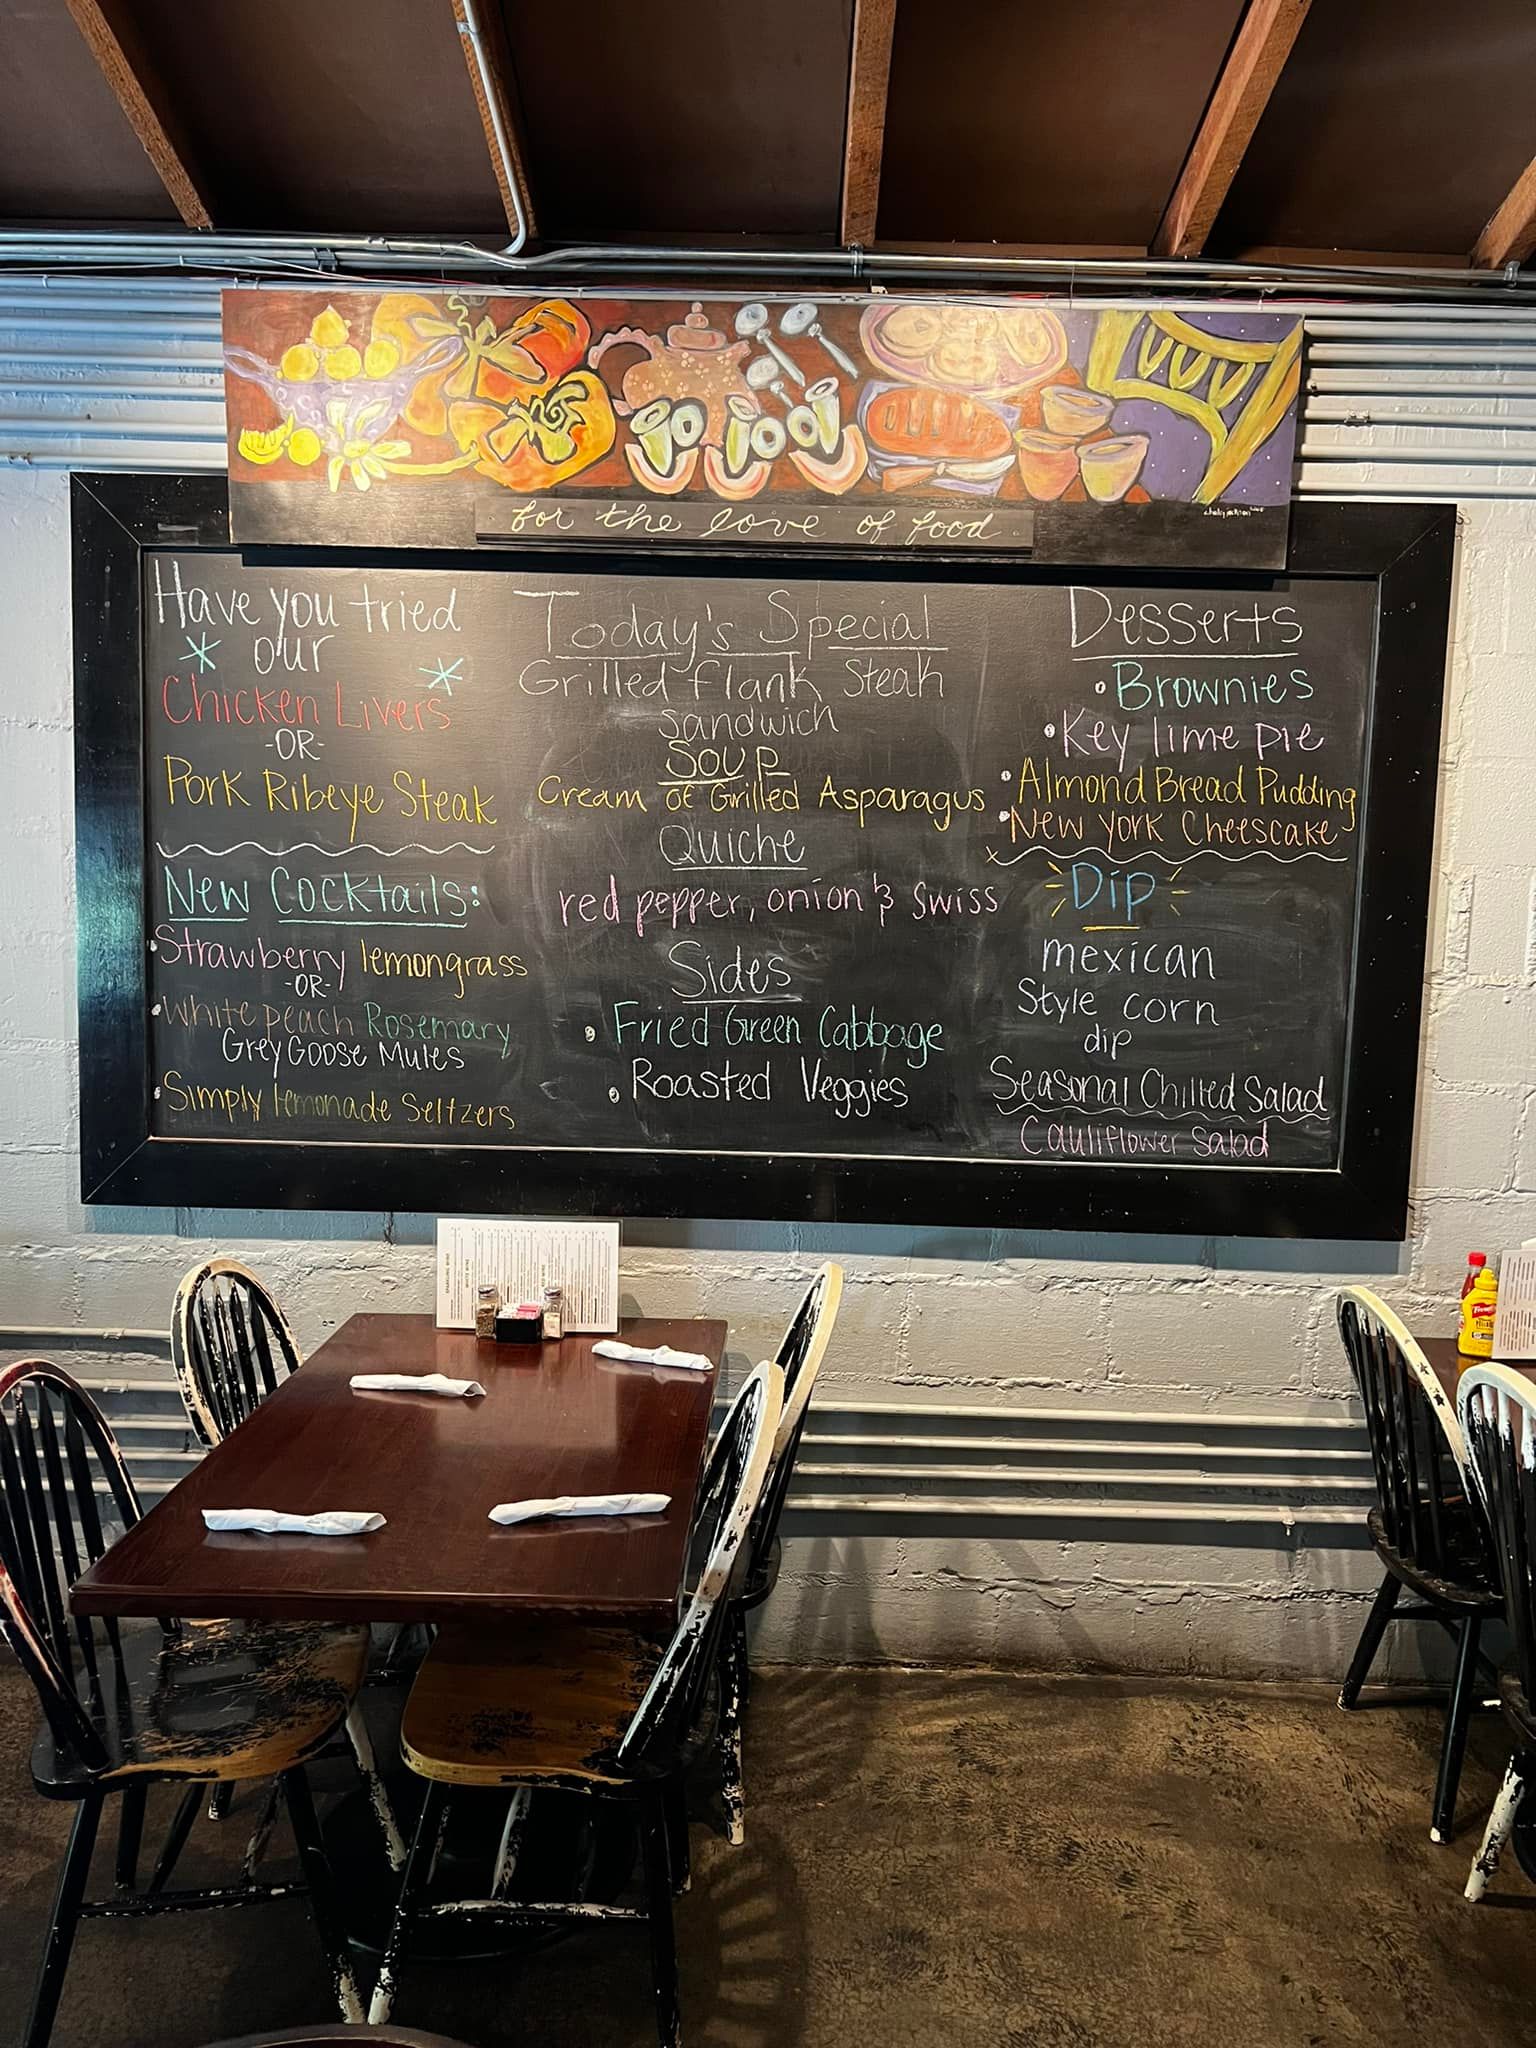 for the love of food
Have you tried
* our *
Chicken Livers
-OR-
Pork Ribeye Steak
New Cocktails:
• Strawberry lemongrass
-OR-
• White peach Rosemary
Grey Goose Mules
• Simply lemonade Seltzers
Today's Special
Grilled flank Steak
sandwich
Soup
Cream of Grilled Asparagus
Quiche
red pepper, onion & Swiss
Sides
• Fried Green Cabbage
• Roasted Veggies
Desserts
• Brownies
• Key lime pie
• Almond Bread Pudding
• New York Cheescake
Dip
mexican
Style corn
dip
Seasonal Chilled Salad
Cauliflower Salad